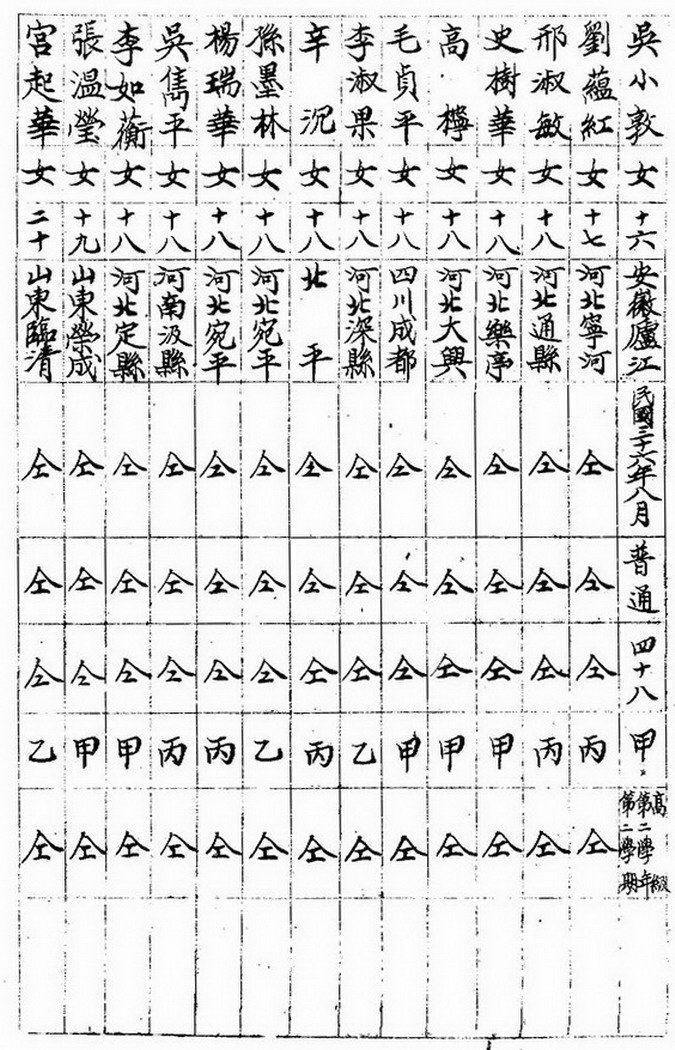 吳小敦 女 十六 安徽廬江 民國三十六年八月 普通 四十八 甲 高級第二學年第二學期
劉蘊紅 女 十七 河北寧河 仝 仝 仝 丙 仝
邢淑敏 女 十八 河北通縣 仝 仝 仝 丙 仝
史樹華 女 十八 河北樂亭 仝 仝 仝 甲 仝
高 檸 女 十八 河北大興 仝 仝 仝 甲 仝
毛貞平 女 十八 四川成都 仝 仝 仝 甲 仝
李淑果 女 十八 河北深縣 仝 仝 仝 乙 仝
辛 沉 女 十八 北平 仝 仝 仝 丙 仝
孫墨林 女 十八 河北宛平 仝 仝 仝 乙 仝
楊瑞華 女 十八 河北宛平 仝 仝 仝 丙 仝
吳雋平 女 十八 河南汲縣 仝 仝 仝 丙 仝
李如蘅 女 十八 河北定縣 仝 仝 仝 甲 仝
張溫瑩 女 十九 山東榮成 仝 仝 仝 甲 仝
宮起華 女 二十 山東臨清 仝 仝 仝 乙 仝